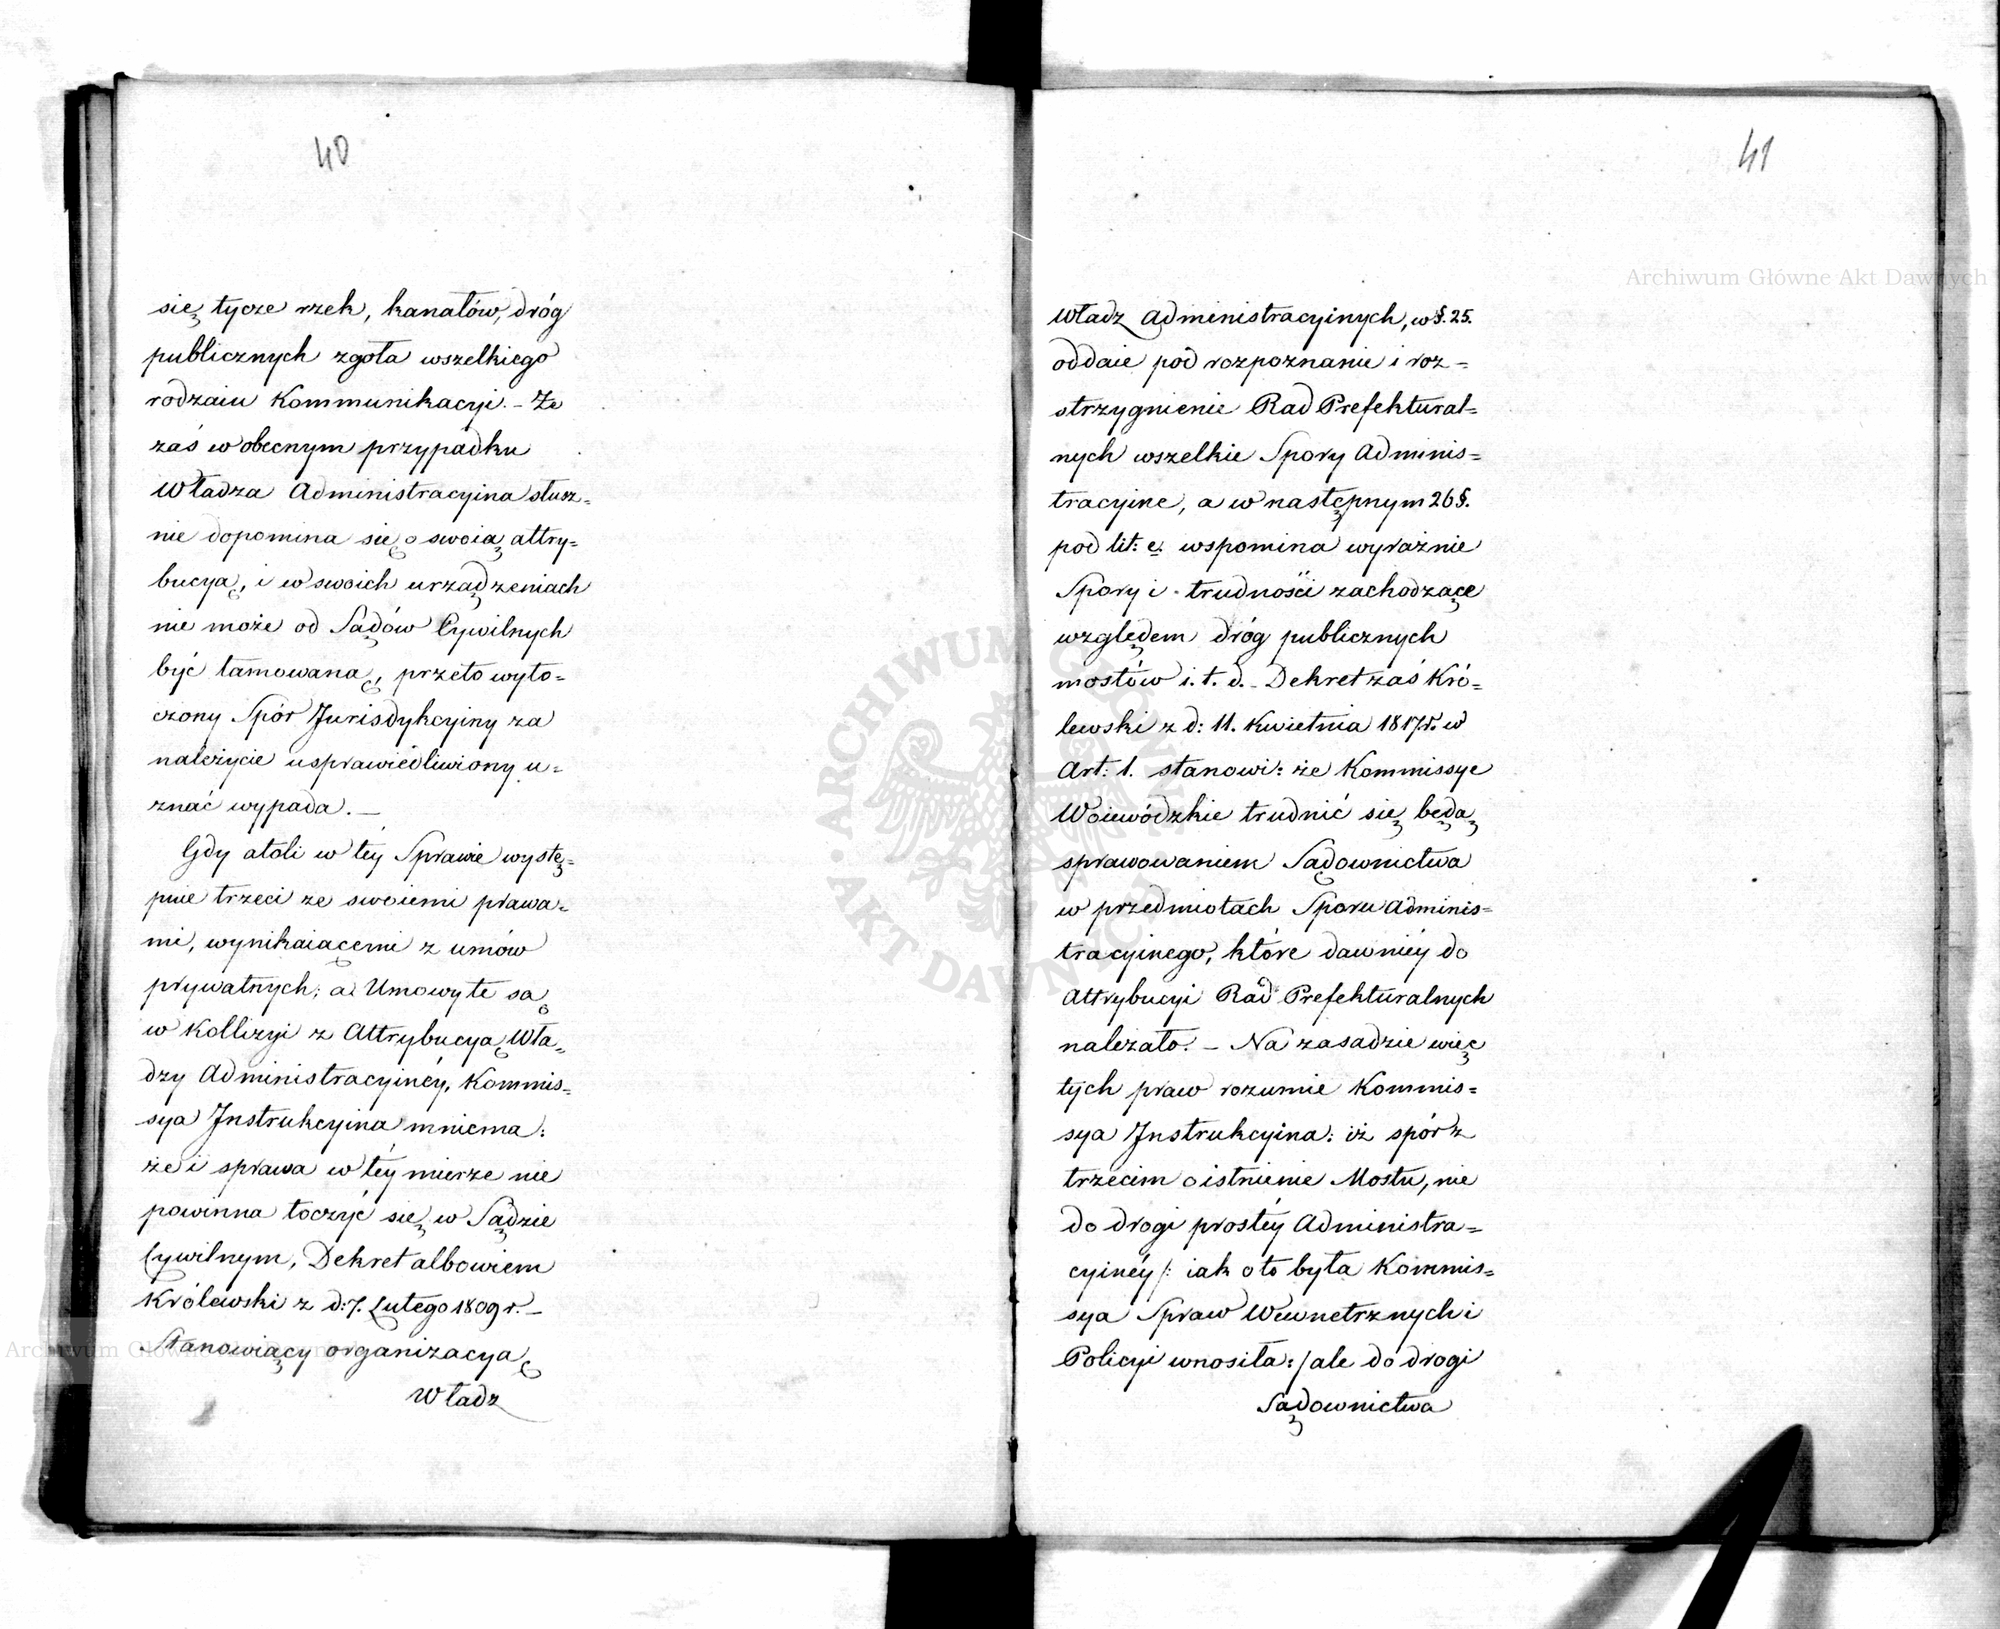 40
się tycze rzek, kanałów, dróg
publicznych zgoła wszelkiego
rodzaiu Kommunikacyi. - Że
zaś w obecnym przypadku
Władza Administracyina słusz=
nie dopomina się o swoią attry=
bucyą, i w swoich urządzeniach
nie może od Sądów Cywilnych
być tamowaną, przeto wyto=
czony Spór Jurisdykcyiny za
należycie usprawiedliwiony u=
znać wypada. —
Gdy atoli w téy Sprawie wystę=
puie trzeci ze swoiemi prawa=
mi, wynikaiącemi z umów
prywatnych; a Umowy te są
w Kollizyi z Attrybucyą Wła=
dzy Administracyinéy, Kommis=
sya Instrukcyina mniema:
że i sprawa w téy mierze nie
powinna toczyć się w Sądzie
Cywilnym, Dekret albowiem
Królewski z d: 7. Lutego 1809 r. -
Stanowiący organizacyą
Władz
41
Władz Administracyinych, w §. 25.
oddaie pod rozpoznanie i roz=
strzygnienie Rad Prefektural=
nych wszelkie Spory Adminis=
tracyine, a w następnym 26 §.
pod lit: e. wspomina wyraźnie
Spory i trudności zachodzące
względem dróg publicznych
mostów i. t. d. - Dekret zaś Kró=
lewski z d: 11. Kwietnia 1817. r. w
Art: 1. stanowi: że Kommissye
Woiewódzkie trudnić się będą
sprawowaniem Sądownictwa
w przedmiotach Sporu Adminis=
tracyinego, które dawniéy do
Attrybucyi Rad Prefekturalnych
należało. - Na zasadzie więc
tych praw rozumie Kommis=
sya Instrukcyina: iż spór z
trzecim o istnienie Mostu, nie
do drogi prostéy Administra=
cyinéy /: iak o to była Kommis=
sya Spraw Wewnetrznych i
Policyi wnosiła: / ale do drogi
Sądownictwa
Archiwum Główne Akt Dawnych
ARCHIWUM GŁÓWNE • AKT DAWNYCH •
Archiwum Główne Akt Dawnych